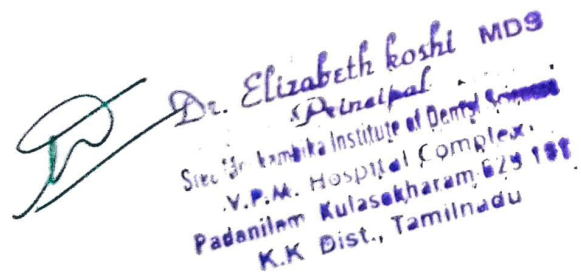 Dr. Elizabeth koshi MDS
Principal
Institute of Dental
V.P.M. Hospital Complex.
Padanilam Kulasekharam, 629
K.K Dist., Tamilnadu